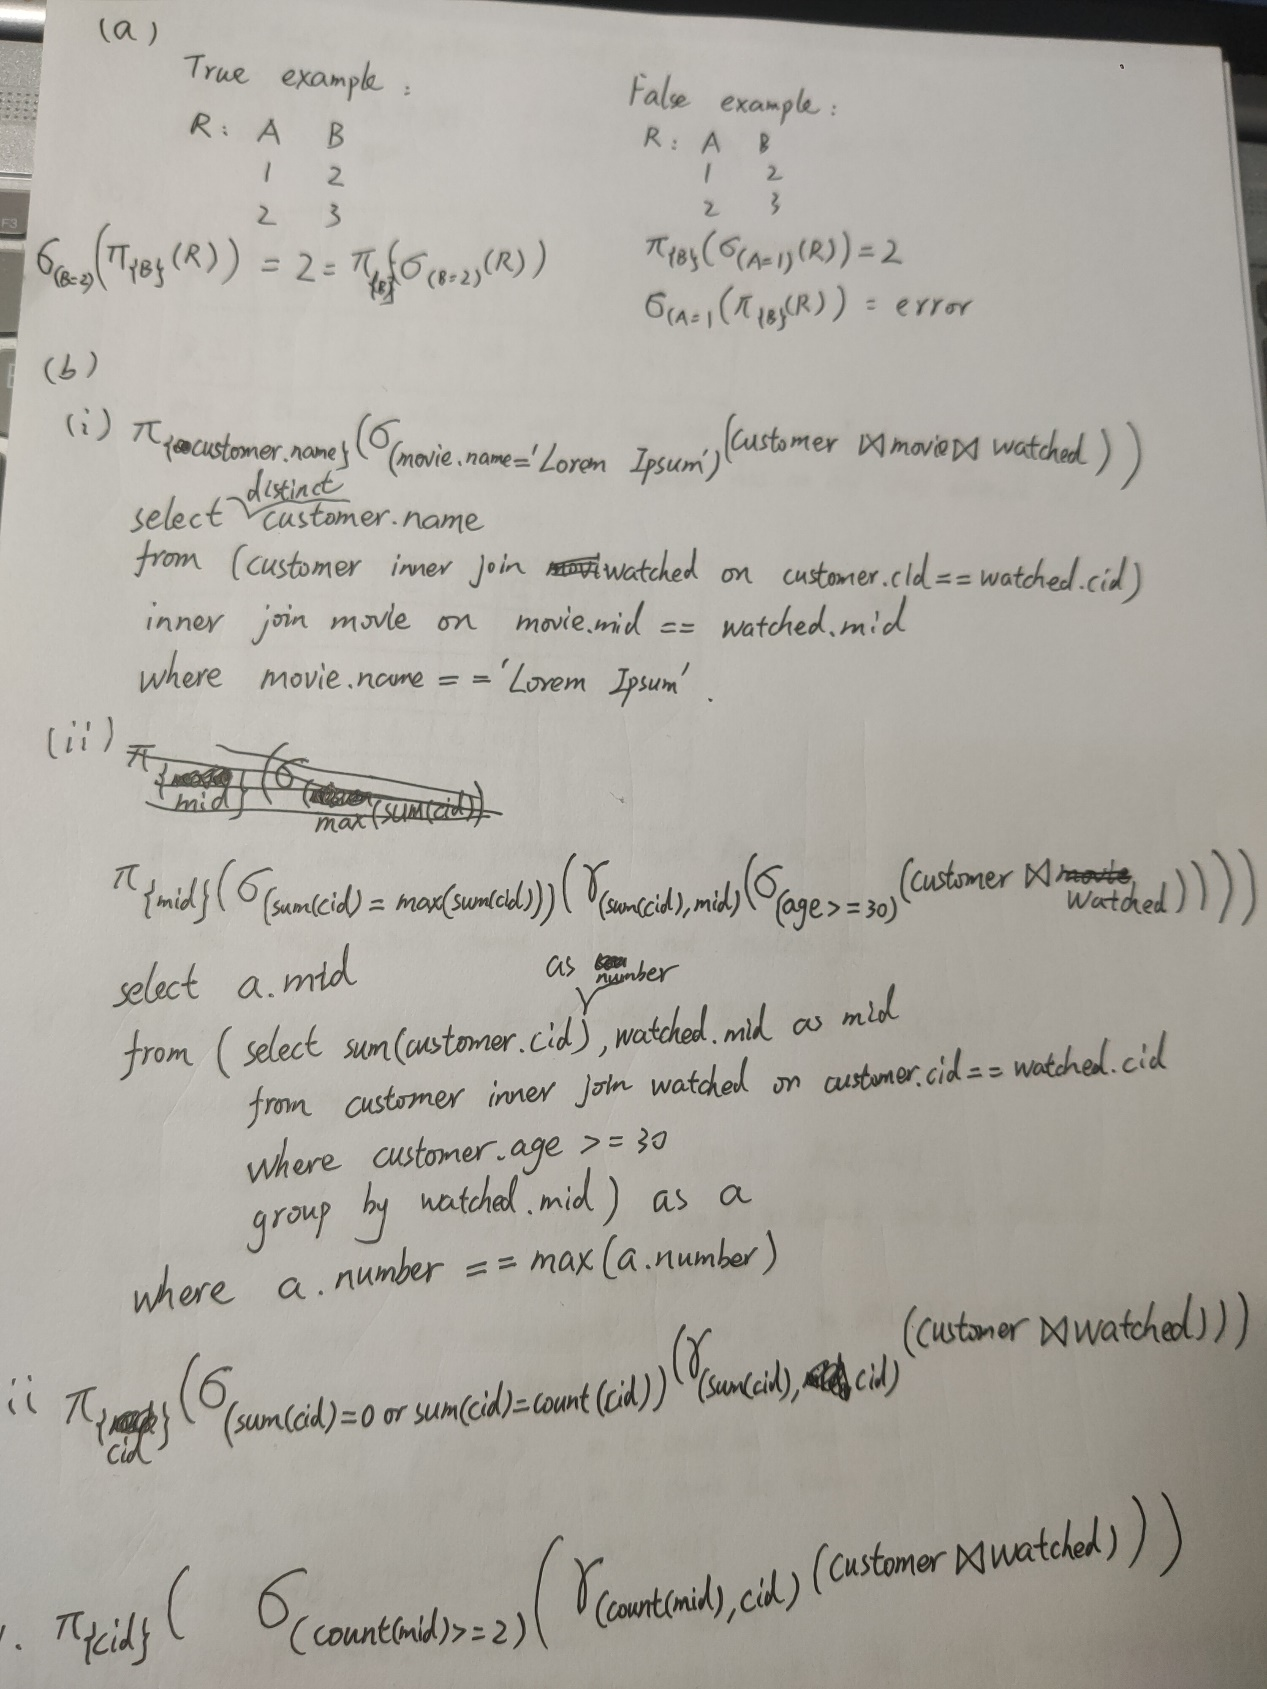 (a)
True example :
R : A B
1 2
2 3
σ(B=2)(π{B}(R)) = 2 = π{B}(σ(B=2)(R))
False example :
R : A B
1 2
2 3
π{B}(σ(A=1)(R)) = 2
σ(A=1(π{B}(R)) = error
(b)
(i) π{customer.name}(σ(movie.name='Lorem Ipsum')(customer ⋈ movie ⋈ watched))
select distinct customer.name
from (customer inner join watched on customer.cid == watched.cid)
inner join movie on movie.mid == watched.mid
where movie.name == 'Lorem Ipsum' .
(ii) π{mid}(σ(max(sum(cid))
π{mid}(σ(sum(cid) = max(sum(cid)))(γ(sum(cid), mid)(σ(age >= 30)(customer ⋈ watched))))
select a.mid
from ( select sum(customer.cid) as number, watched.mid as mid
from customer inner join watched on customer.cid == watched.cid
where customer.age >= 30
group by watched.mid) as a
where a.number == max(a.number)
ii π{cid}(σ(sum(cid)=0 or sum(cid)=count(cid))(γ(sum(cid), cid)(customer ⋈ watched)))
. π{cid}( σ(count(mid)>=2)(γ(count(mid), cid)(customer ⋈ watched)))